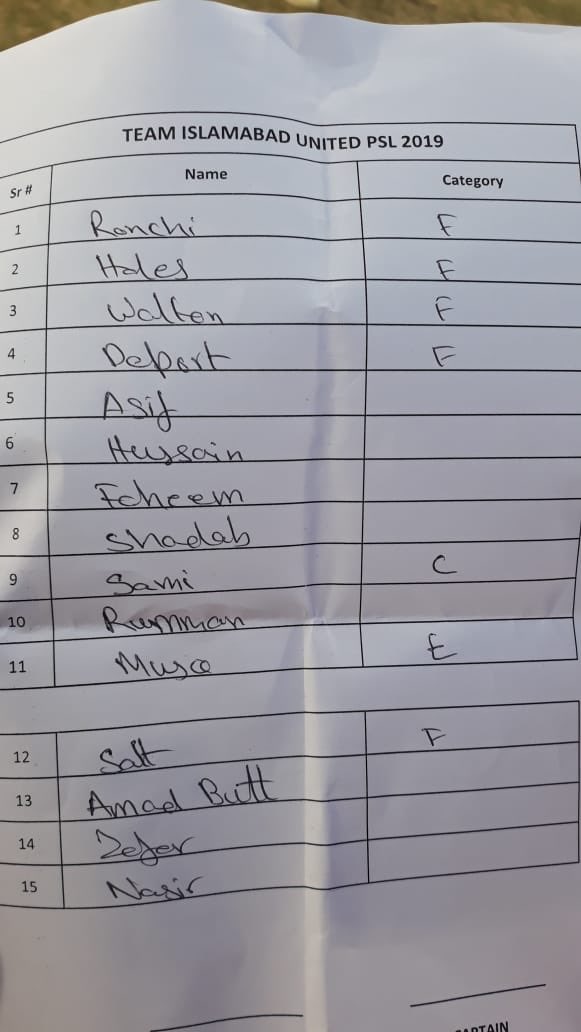 TEAM ISLAMABAD UNITED PSL 2019
Sr # Name Category
1 Ronchi F
2 Hales F
3 Walton F
4 Delport F
5 Asif
6 Hussain
7 Faheem
8 Shadab
9 Sami C
10 Rumman
11 Musa E
12 Salt F
13 Amad Butt
14 Zafar
15 Nasir
CAPTAIN